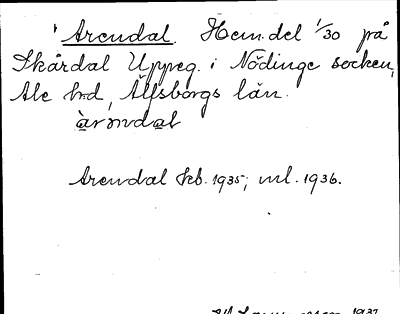 Arendal. Hem.del 1/30 på
Skårdal Uppeg. i Nödinge socken,
Ale hd, Älfsborgs län.
àrəndal
Arendal kb. 1935; ml. 1936.
1937